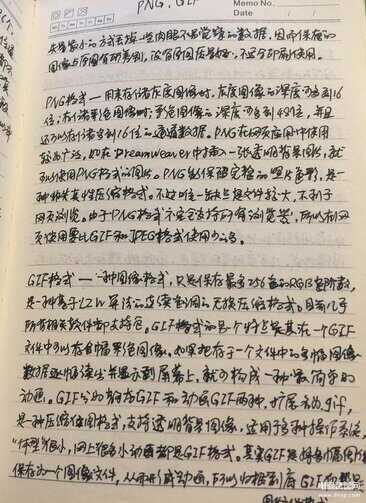 PNG, GIF
Memo No.
Date / /
失量小的方式去掉一些肉眼不易觉察的数据，因而保存的
图像与原图有所差别，没有原图质量好，不适合印刷使用。
PNG格式——用来存储灰度图像时，灰度图像的深度可多到16
位，存储彩色图像时，彩色图像的深度可多到48位，并且
还可以存储多到16位的通道数据。PNG在网页应用中使用
较为广泛，如在Dreamweaver中插入一张透明背景图片，就
可以使用PNG格式的图片。PNG能保留完整的照片色彩，是一
种非失真性压缩格式。不过唯一缺点是文件较大，不利于
网页浏览。由于PNG格式不完全支持所有浏览器，所以在网
页使用要比GIF和JPEG格式使用少的多。
GIF格式——一种图像格式，只是保存最多256色的RGB色阶数，
是一种基于LZW算法的连续色调的无损压缩格式。目前几乎
所有相关软件都支持它。GIF格式的另一个特点是其在一个GIF
文件中可以存多幅彩色图像，如果把存于一个文件中的多幅图像
数据逐幅读出并显示到屏幕上，就可构成一种最简单的
动画。GIF分为静态GIF和动画GIF两种，扩展名为.gif，
是一种压缩位图格式，支持透明背景图像，适用于多种操作系统，
"体型"很小，网上很多小动画都是GIF格式。其实GIF是将多幅图像
保存为一个图像文件，从而形成动画，所以归根到底GIF